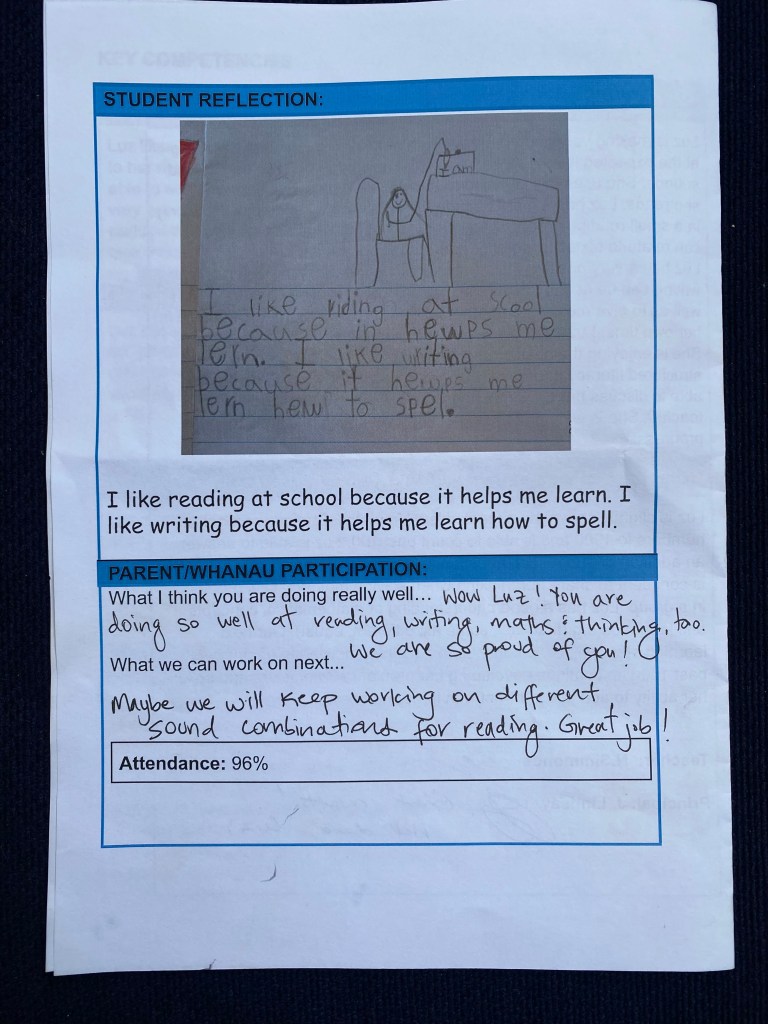 STUDENT REFLECTION:
I am
I like riding at scool
because in hewps me
lern. I like writing
because it hewps me
lern hew to spel.
I like reading at school because it helps me learn. I
like writing because it helps me learn how to spell.
PARENT/WHANAU PARTICIPATION:
What I think you are doing really well... Wow Luz! You are
doing so well at reading, writing, maths & thinking, too.
We are so proud of you!
What we can work on next...
Maybe we will keep working on different
sound combinations for reading. Great job!
Attendance: 96%